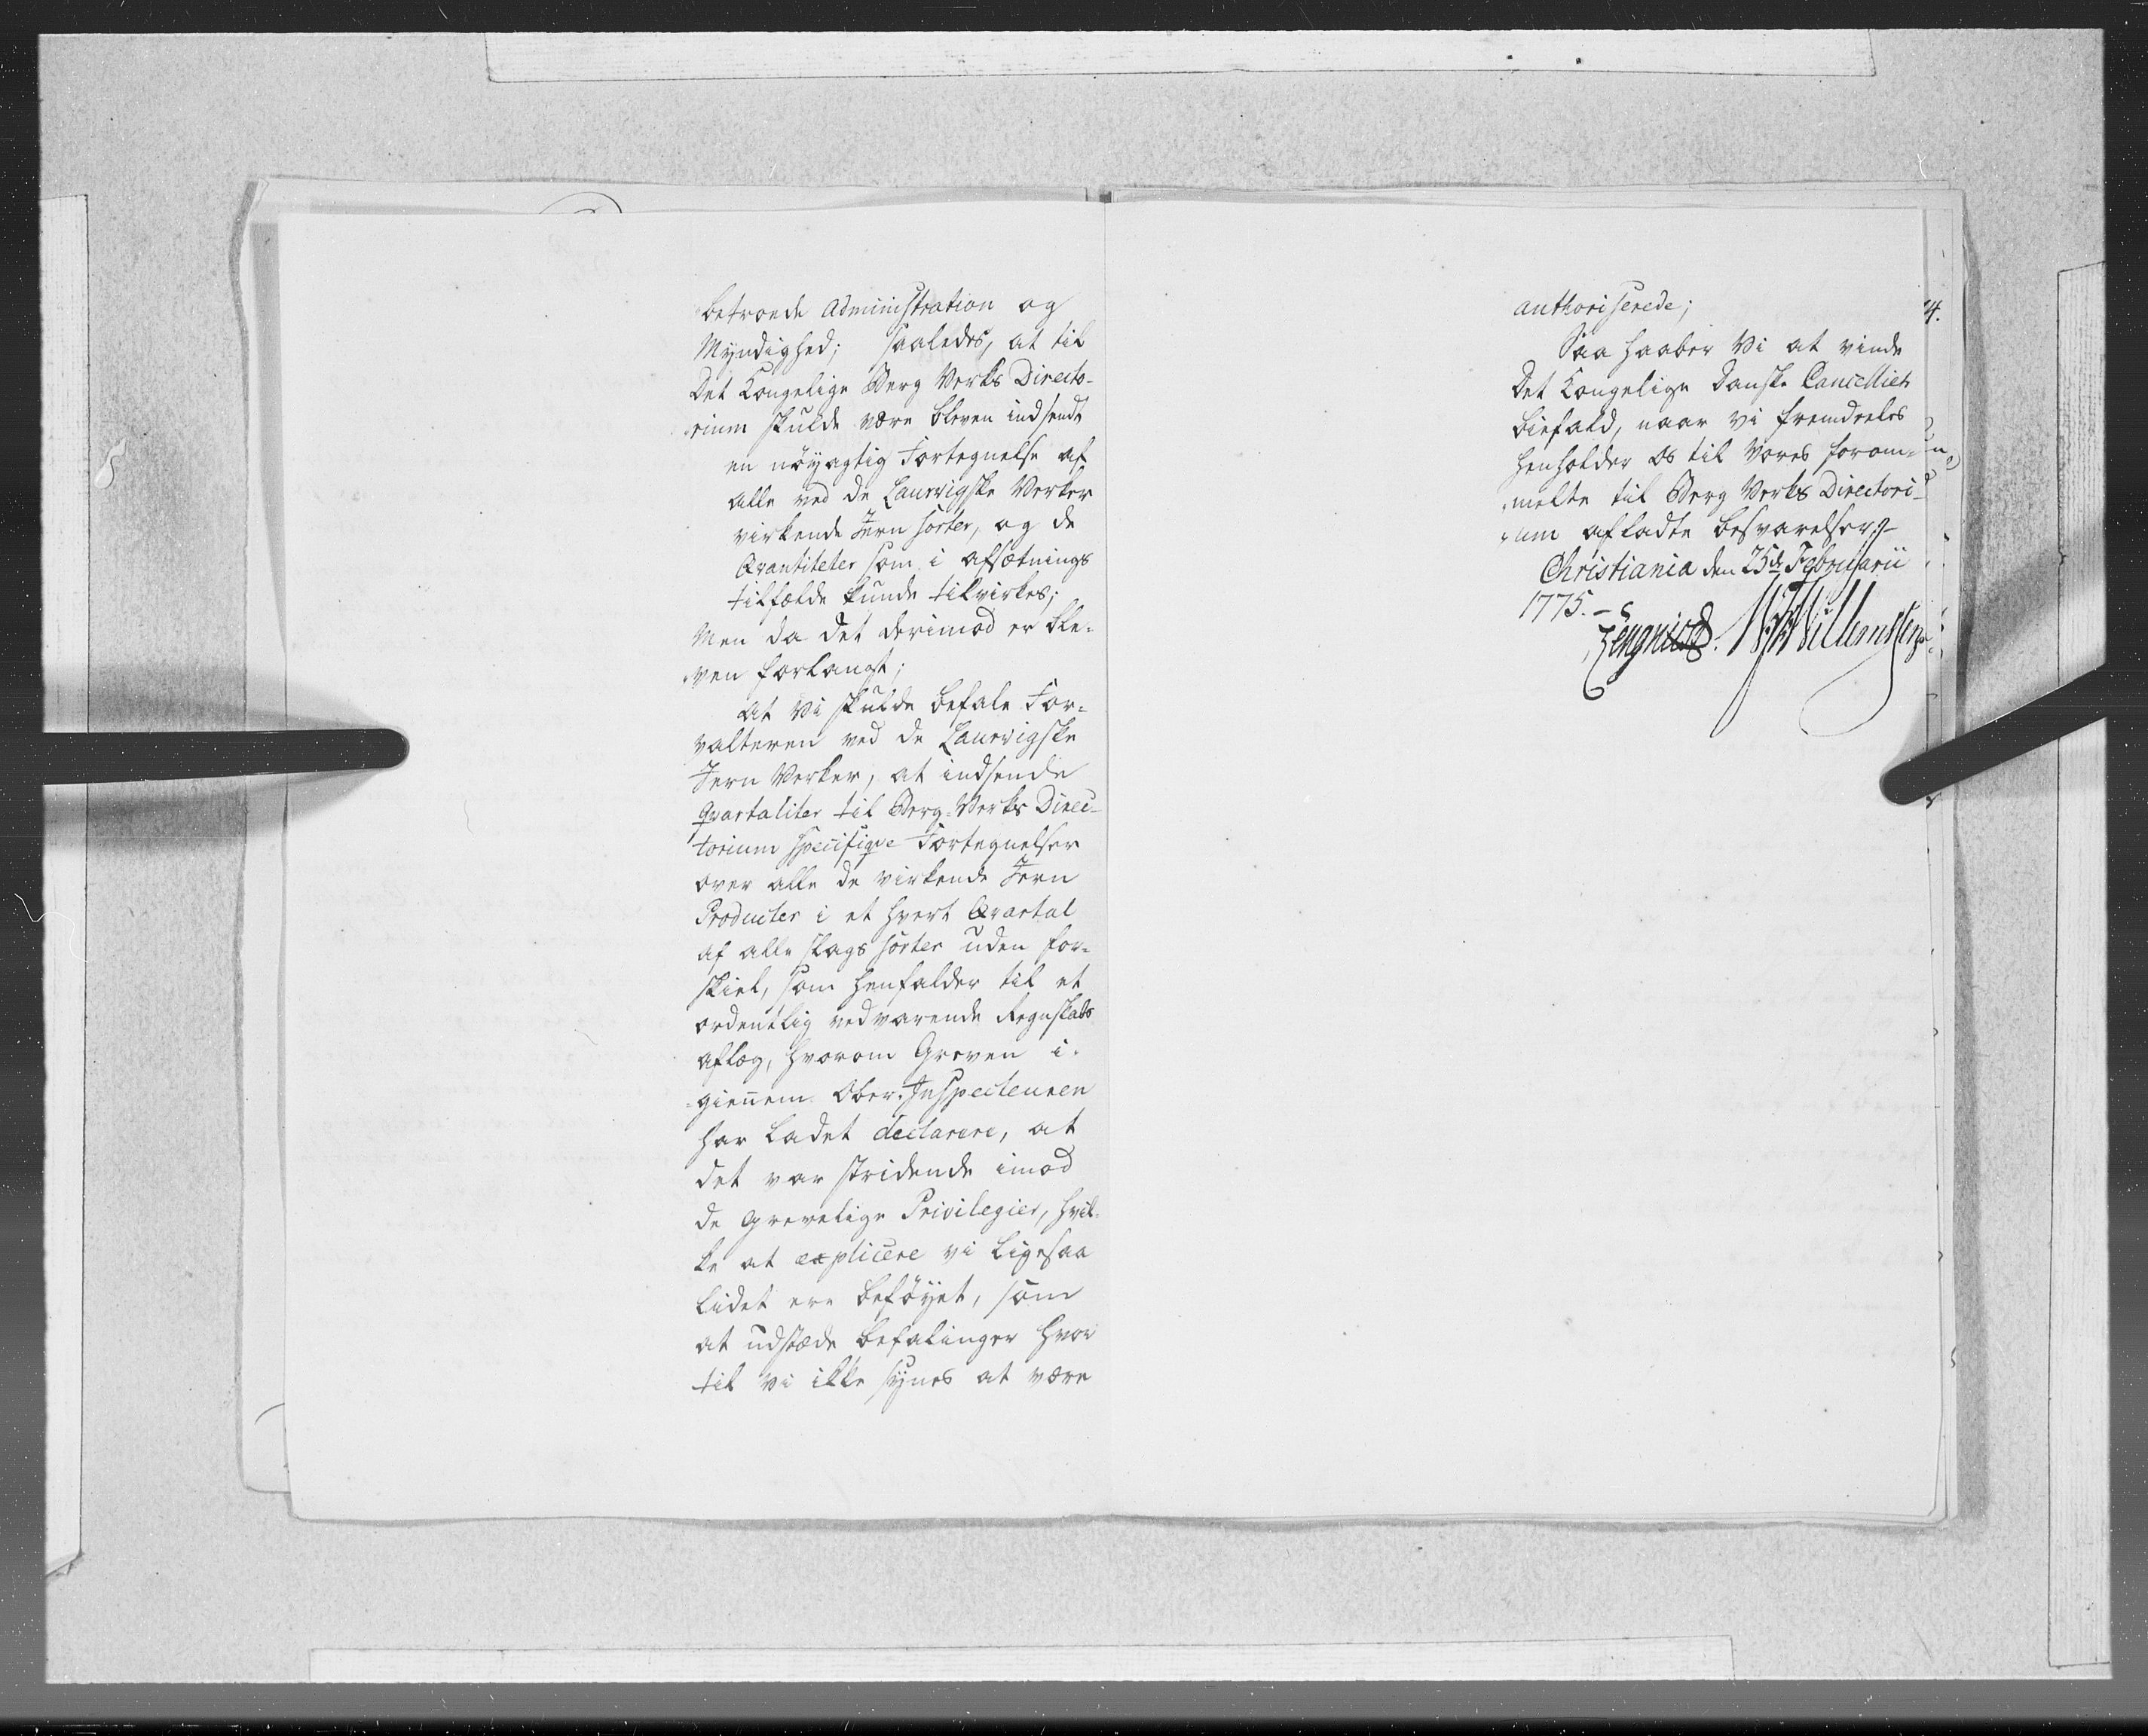 betroede Administration og
Myndighed; saaledes, at til
Det Kongelige Berg Verks Directo-
rium skulde være bleven indsendt
en nöÿagtig Fortegnelse af
alle ved de Laurvigske Verker
virkende Jern sorter, og de
Qvantiteter som i afsætnings
tilfælde kunde tilvirkes;
Men da det derimod er ble-
ven forlangt;
at Vi skulde befale For-
valteren ved de Laurvigske
Jern Verker, at indsende
Qvartaliter til Berg-Verks Direc-
torium specifiqve Fortegnelser
over alle de virkende Jern
Producter i et hvert Qvartal
af alle slags sorter uden for-
skiel, som henfalder til et
ordentlig vedvarende Regnskabs
aflæg, hvorom Greven i-
giennem Ober-Inspecteuren
har ladet declarere, at
det var stridende imod
de grevelige Privilegier, hvil-
ke at explicere vi ligesaa
lidet ere beföÿet, som
at udstæde befalinger hvor
til vi ikke synes at være
authoriserede;
Saa haaber Vi at vinde
Det Kongelige Danske Cancellies
biefald, naar vi fremdeles
henholder os til vores forom-
melte til Berg Verks Directori-
um afladte besvarelser.
Christiania den 25de Februarii
1775.